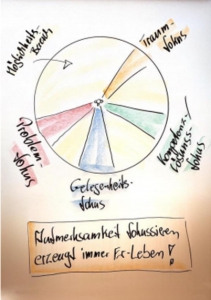 Möglichkeits-
Bereich
Traum-
fokus
Problem-
fokus
Kompetenz-
fokus
Gelegenheits-
fokus
Aufmerksamkeit fokussieren
erzeugt immer Er-Leben!